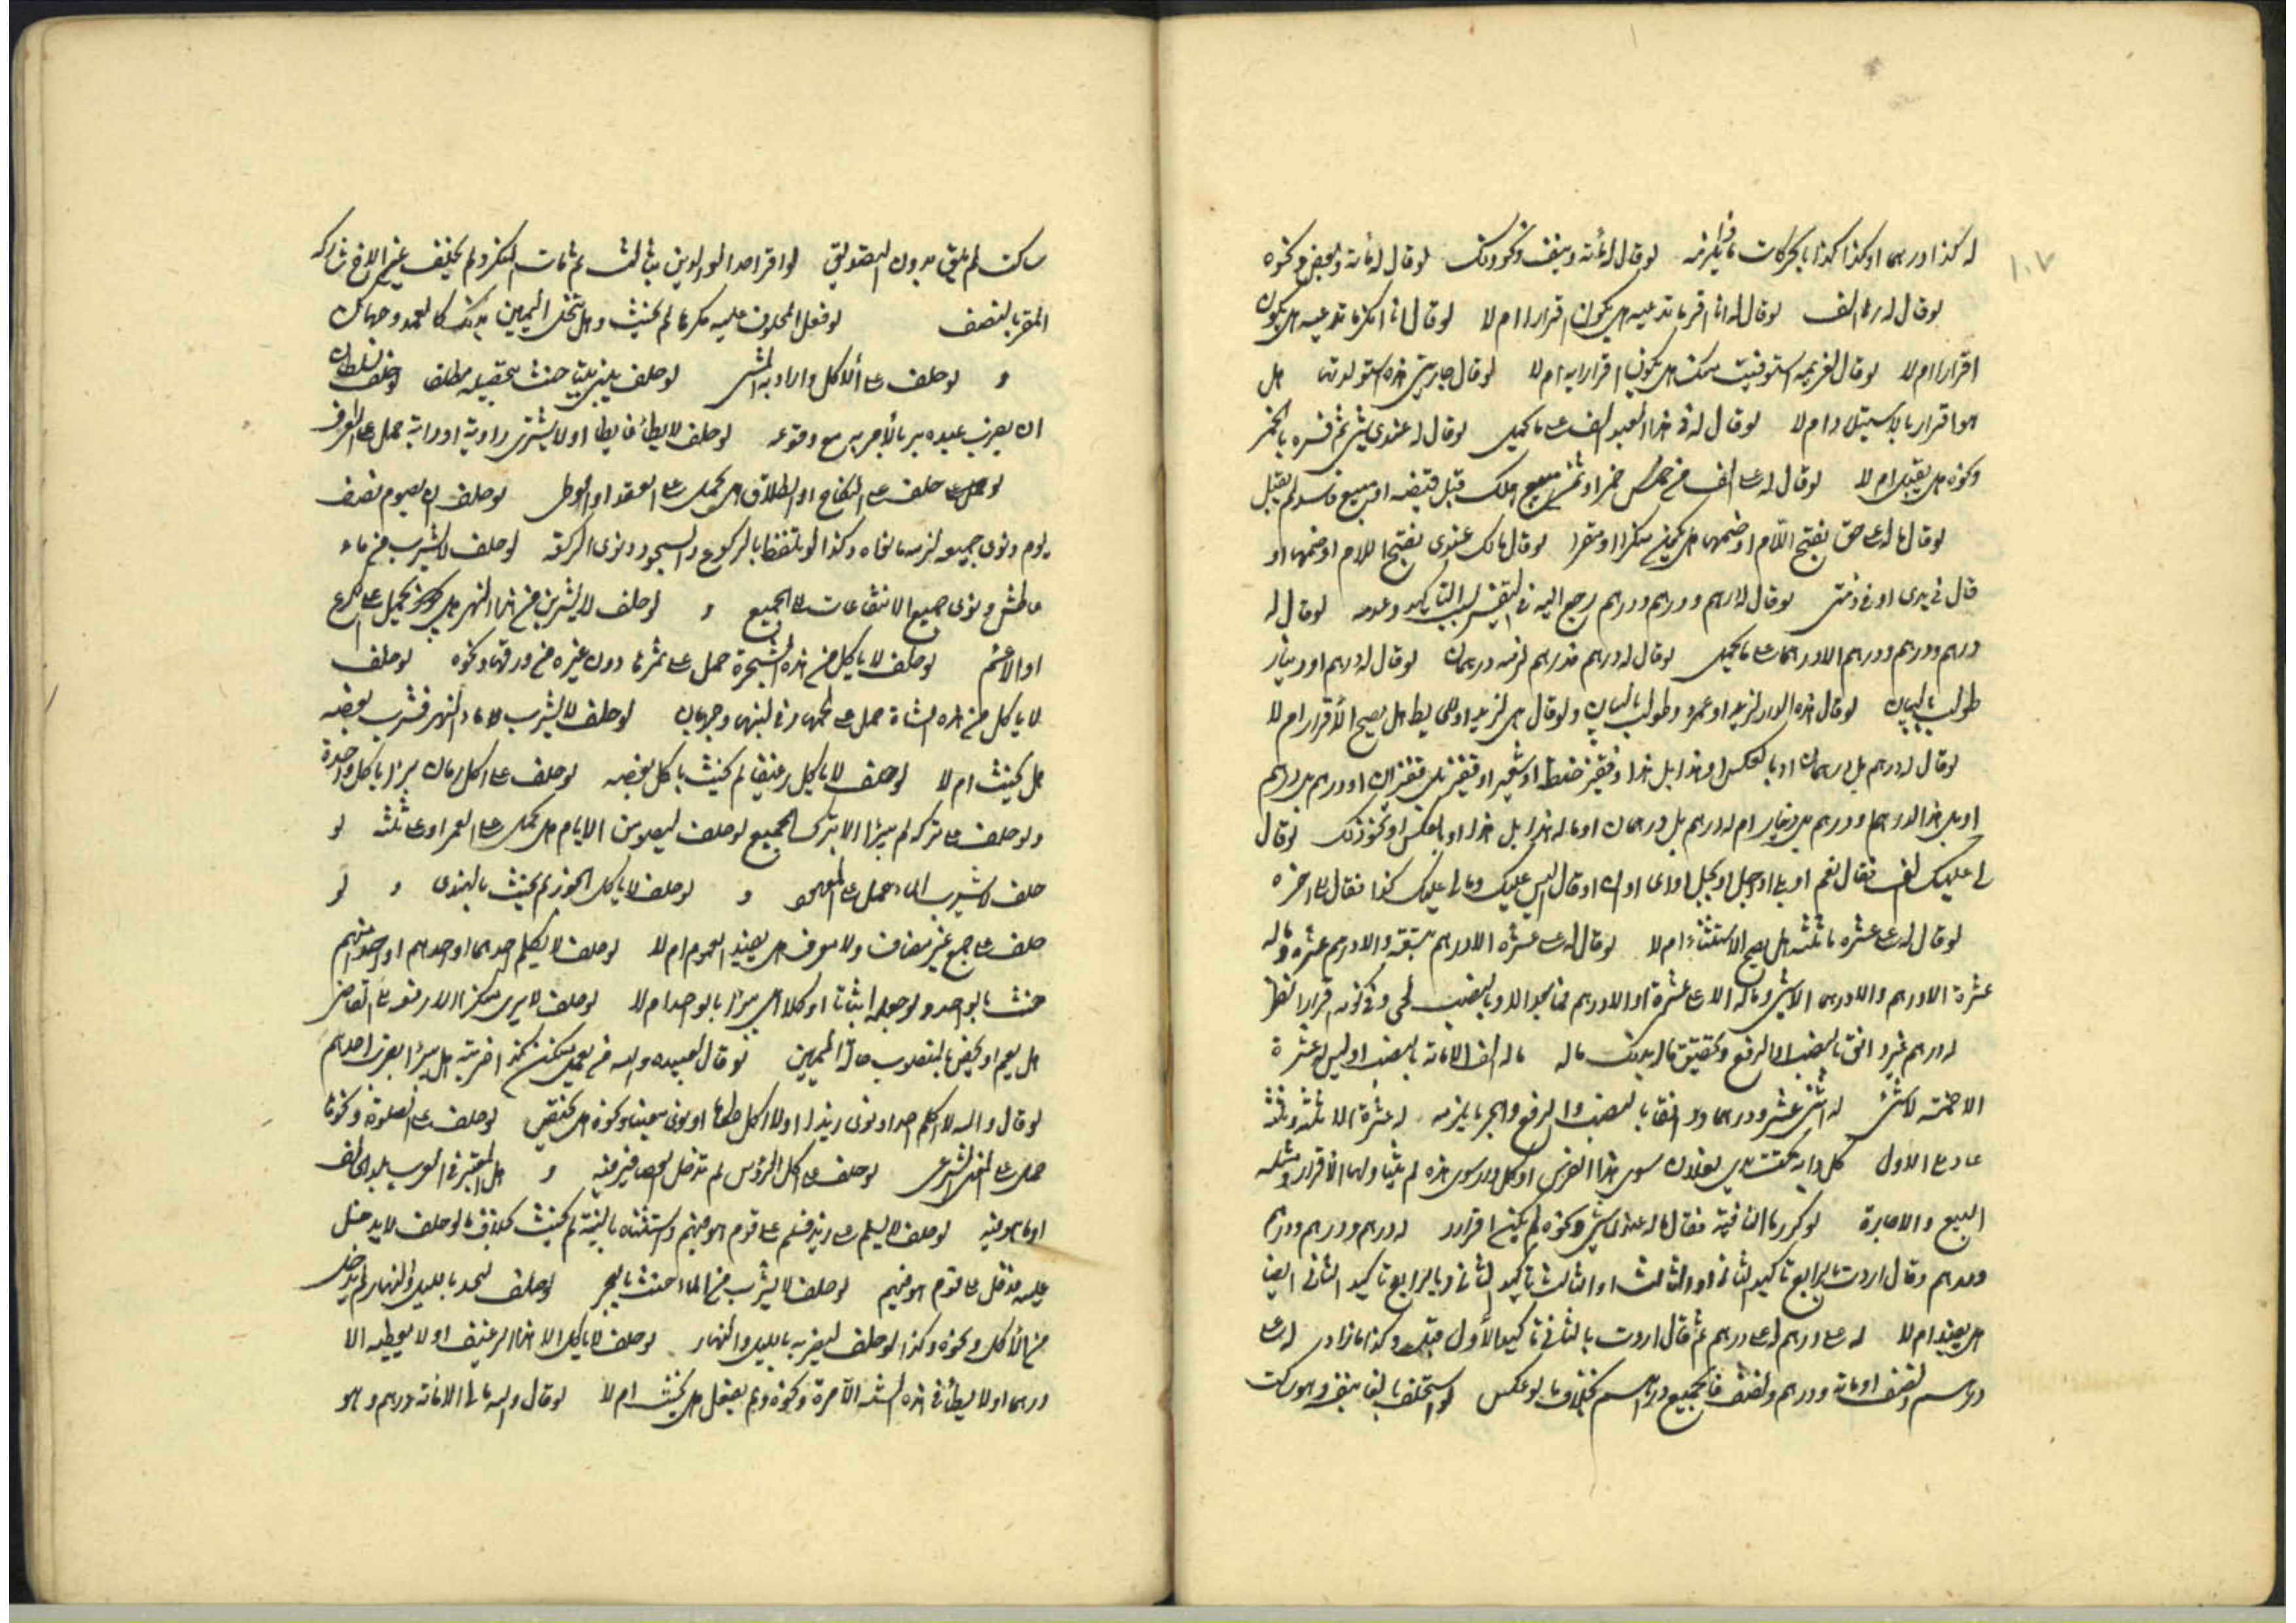 ١٠٧
له كذا درهما او كذا كذا بالحركات ما يلزمه لو قال له مأته ونيف ونحو ذلك لو قال له مأته وبعض ونحوه
لو قال له رها الف لو قال له انا اقر بما تدعيه هل يكون اقرارا ام لا لو قال انا انكر ما تدعيه هل يكون
اقرارا ام لا لو قال لغريمه استوفيت منك هل يكون اقرارا به ام لا لو قال جاريتي هذه استولدتها هل
هو اقرار بالاستيلاد ام لا لو قال له في هذا العبد الف على ما يحمل لو قال له عندي شئ ثم فسره بالخمر
ونحوه هل يقبل ام لا لو قال له على الف من ثمن خمر او ثمن مبيع هلك قبل قبضه او مبيع فاسد لم يقبل
لو قال ما له على حق بفتح اللام او ضمها هل يكون منكرا او مقرا لو قال مالك عندي بفتح اللام او ضمها او
قال في يدى او في ذمتى لو قال له درهم ودرهم ودرهم رجع اليه في التفسير التأكيد وعدمه لو قال له
درهم ودرهم ودرهم الا درهما على ما يحمل لو قال له درهم فدرهم لزمه درهمان لو قال له درهم او دينار
طولب بالبيان لو قال هذه الدار لزيد او عمرو طولب بالبيان ولو قال هى لزيد او الحايط هل يصح الاقرار ام لا
لو قال له درهم بل درهمان او بالعكس او هذا بل هذا او قفيز حنطة او شعير او قفيز بل قفيزان او درهم بل درهم
او بل هذا الدرهم او درهم بل دينار ام له درهم بل درهمان او ماله هذا بل هذا او بالعكس او نحو ذلك لو قال
لى عليك الف فقال نعم او بلى او اجل او بجل او اى او ان او قال اليس عليك وما لى عليك كذا فقال الى اخره
لو قال له على عشرة ما ثلثة هل يصح الاستثناء ام لا لو قال له على عشرة الا درهم سبعة والا درهم عشرة وماله
عشرة الا درهم والا درهما الا شئ وماله الا على عشرة او الا درهم فما بعد الا وبالنصب وفى كونه اقرارا نظر
له درهم غير دانق بالنصب او الرفع وتحقيق ما له بذلك ماله ماله الف الا مائة بالنصب او ليس له عشرة
الا خمسة لا شئ له اثنى عشر درهما ودانقا بالنصب والرفع والجر ما يلزمه له عشرة الا ثلثة وثلثة
عاد على الاول كل دابة تحت يدى لفلان سوى هذا الفرس او كل دار سوى هذه لم يتناولهما الاقرار ومثله
البيع والاجارة لو كرر ما النافية فقال ما ما له عندى شئ ونحوه لم يكن اقرارا له درهم ودرهم ودرهم
ودرهم وقال اردت بالرابع تأكيد الثانى او الثالث او الثالث تأكيد الثانى وبالرابع تأكيد الثانى ايضا
هل يفيد ام لا له على درهم له على درهم ثم قال اردت بالثانى تأكيد الاول قبل وكذا ما زاد له على
درهم ونصف او مائة ودرهم ونصف فالجميع دراهم بخلاف ما لو عكس لو استحلف بالفا نيف وهو ساكت
ساكت لم يلق بدون التصديق لو اقر احد الولدين بثالث ثم مات المنكر ولم يخلف غير الاخ شاركه
المقر بالنصف لو فعل المحلوف عليه مكرها لم يحنث وهل تنحل اليمين بذلك كالعمد وجهان
و لو حلف على الاكل واراد به المشى لو حلف ليبنى بيتا حنث بتحصيله مطلقا لو حلف السلطان
ان يضرب عبده بر بالامر به مع وقوعه لو حلف لا يطأ غايطا او لا يشترى راوية او دابة حمل على العرف
لو حلف على النكاح او الطلاق هل يحمل على العقد او الوطى لو حلف ان يصوم نصف
يوم ونوى جميعه لزمه ما نواه وكذا لو تلفظ بالركوع والسجود ونوى الركعة لو حلف لا يشرب من ماء
عاطش ونوى جميع الانتفاعات على الجميع و لو حلف لا يشرب من هذا النهر هل يحمل على الكرع
او الاعم لو حلف لا يأكل من هذه الشجرة حمل على ثمرها دون غيره من ورقها ونحوه لو حلف
لا يأكل من هذه الشاة حمل على لحمها وفى لبنها وجهان لو حلف لا يشرب ماء النهر فشرب بعضه
هل يحنث ام لا لو حلف لا يأكل رغيفا لم يحنث بأكل بعضه لو حلف على اكل رمان برا بأكل واحدة
ولو حلف على تركه لم يبرا الا بترك الجميع لو حلف ليصومن الايام هل يحمل على العمر او على ثلثة لو
حلف لا شرب الماء حمل على المعهود و لو حلف لا يأكل الجوز لم يحنث بالهندى و لو
حلف على جمع غير مضاف ولا معرف هل يفيد العموم ام لا لو حلف لا يكلم احدهما او احدهم او احدا منهم
حنث بالواحد ولو جعله اثباتا او كلاهما هل يبرأ بالواحد ام لا لو حلف لا يرى منكرا الا رفعه على القاضى
هل يعم او يختص بالمنصوب حال اليمين لو قال لعبيده والله من يعمل منكن كذا ضربته هل يبرأ بضرب احدهم
لو قال والله لا اكلم احدا ونوى زيدا او لا اكل طعاما ونوى معينا ونحوه هل يختص لو حلف على الصلوة ونحوها
حمل على المعنى الشرعى لو حلف على اكل الرؤس لم تدخل العصافير فيه و هل المعتبر فى العرف بلد الحالف
او ما هو فيه لو حلف لا يسلم على زيد فسلم على قوم هو فيهم واستثناه بالنية لم يحنث بخلاف ما لو حلف لا يدخل
عليه فدخل على قوم هو فيهم لو حلف لا يشرب من الماء حنث بالبحر لو حلف ليحد بالليل والنهار لم يدخل
من الاكل ونحوه وكذا لو حلف ليضربه بالليل والنهار لو حلف لا يأكل الا هذا الرغيف او لا يعطيه الا
درهما او لا يطأ فى هذه السنة الا مرة ونحوه ولم يفعل هل يحنث ام لا لو قال والله ما لى الا مائة درهم وهو